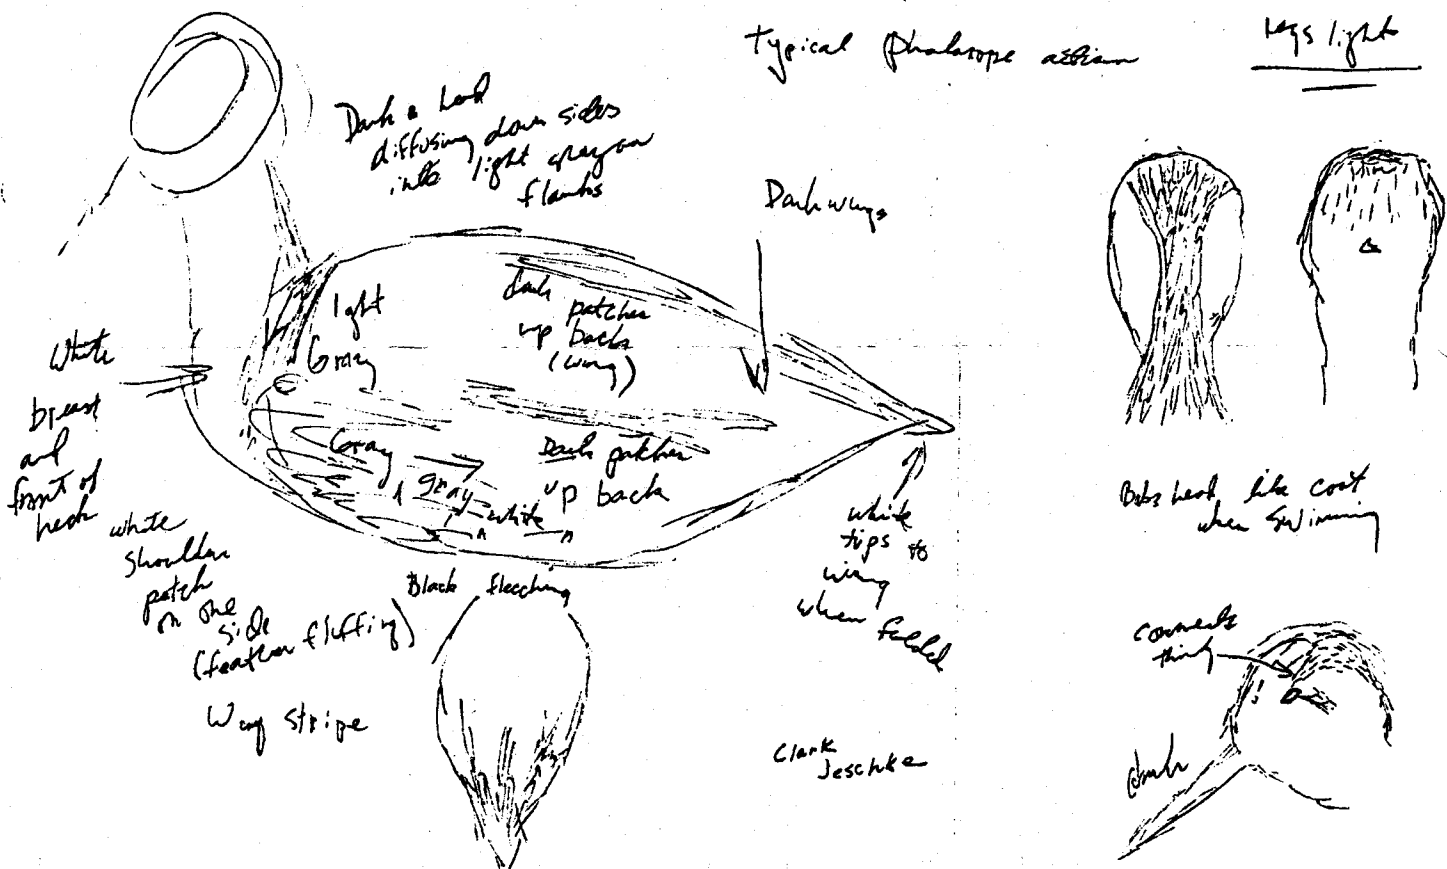 Typical phalarope action
Legs light
Dark a head
diffusing down sides
into light gray on
flanks
Dark wings
light
Gray
dark
patches
up back
(wing)
White
breast
and
front of
neck
Gray
gray
white
Dark patches
up back
white
shoulder
patch
on one
side
(feather fluffing)
Black flecking
white
tips to
wing
when folded
Bobs head like coot
when swimming
Wing stripe
Clark
Jeschke
connects
thinly
dark